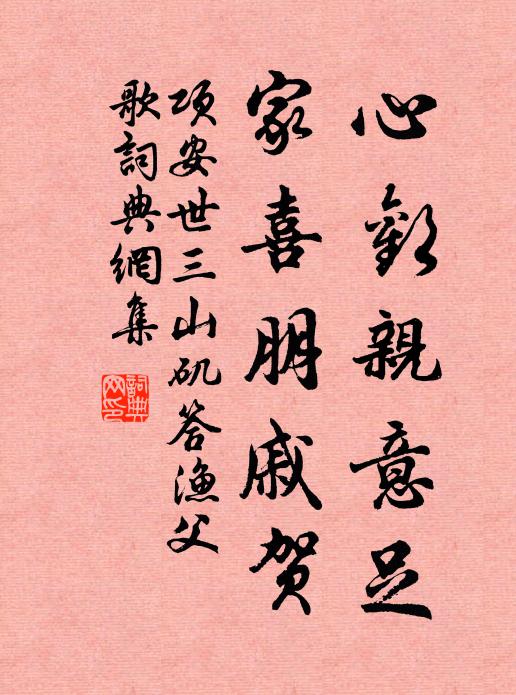 心歡親意足
家喜朋戚賀
項安世三山矶答漁父
歌詞典網集
詞典網印